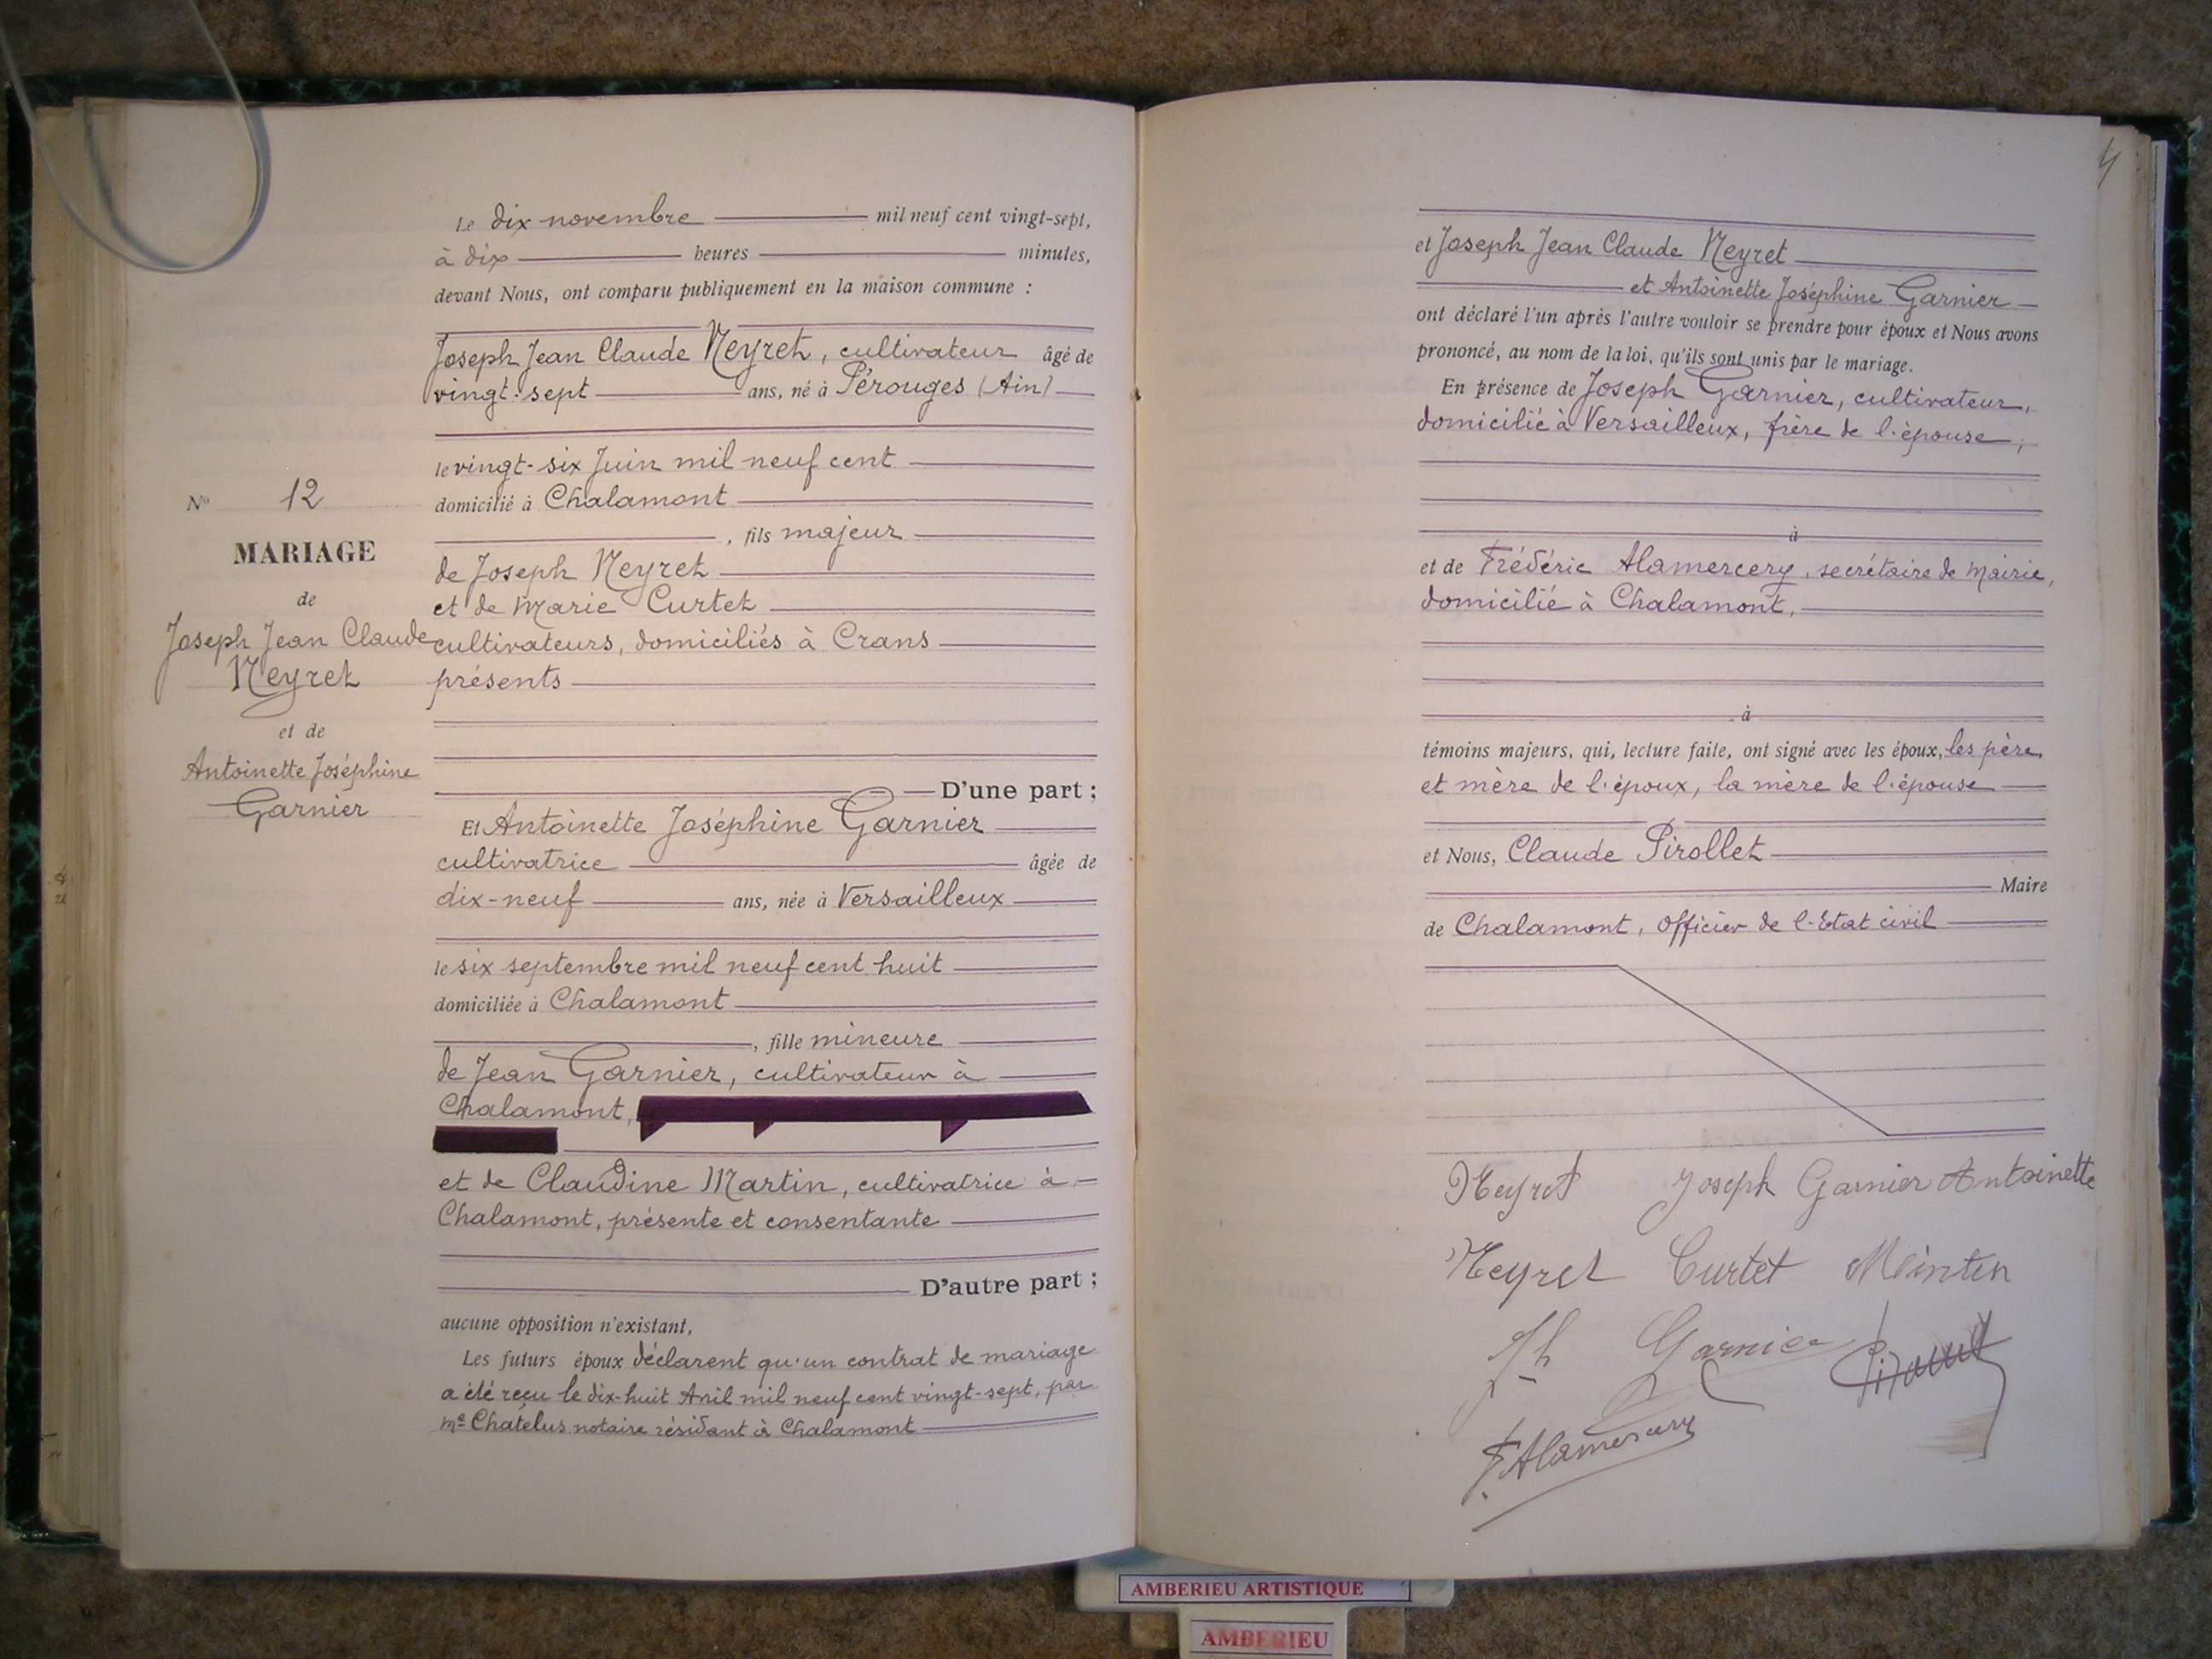 Le dix novembre mil neuf cent vingt-sept,
à dix heures minutes,
devant Nous, ont comparu publiquement en la maison commune :
Joseph Jean Claude Neyret, cultivateur âgé de
vingt-sept ans, né à Pérouges (Ain)
le vingt-six Juin mil neuf cent
domicilié à Chalamont
, fils majeur
de Joseph Neyret
et de Marie Curtet
cultivateurs, domiciliés à Crans
présents
D'une part ;
Et Antoinette Joséphine Garnier
cultivatrice âgée de
dix-neuf ans, née à Versailleux
le six septembre mil neuf cent huit
domiciliée à Chalamont
, fille mineure
de Jean Garnier, cultivateur à
Chalamont,
et de Claudine Martin, cultivatrice à
Chalamont, présente et consentante
D'autre part ;
aucune opposition n'existant,
Les futurs époux déclarent qu'un contrat de mariage
a été reçu le dix-huit Avril mil neuf cent vingt-sept, par
Me Chatelus notaire résidant à Chalamont
No 12
MARIAGE
de
Joseph Jean Claude
Neyret
et de
Antoinette Joséphine
Garnier
et Joseph Jean Claude Neyret
et Antoinette Joséphine Garnier
ont déclaré l'un après l'autre vouloir se prendre pour époux et Nous avons
prononcé, au nom de la loi, qu'ils sont unis par le mariage.
En présence de Joseph Garnier, cultivateur,
domicilié à Versailleux, frère de l'épouse,
à
et de Frédéric Alamercery, secrétaire de Mairie,
domicilié à Chalamont,
à
témoins majeurs, qui, lecture faite, ont signé avec les époux, les père
et mère de l'époux, la mère de l'épouse
et Nous, Claude Pirollet
Maire
de Chalamont, Officier de l'Etat civil
Neyret Joseph Garnier Antoinette
Neyret Curtet
Jh Garnier
F Alamercery
AMBERIEU ARTISTIQUE
AMBERIEU